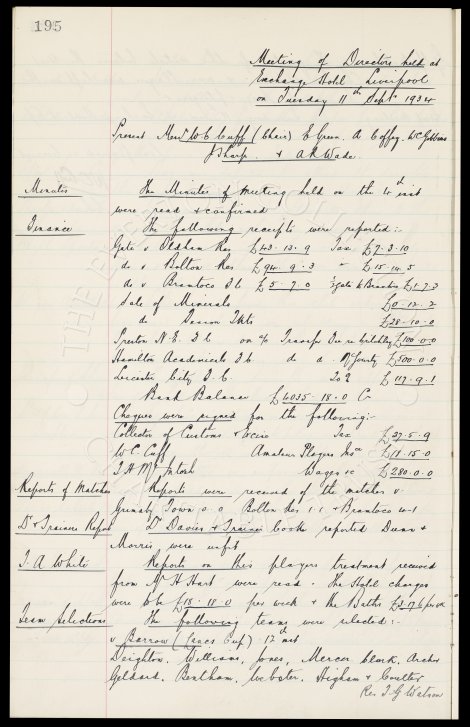 195
Meeting of Directors held at
Exchange Hotel Liverpool
on Tuesday 11th Sept. 1934
Present Messrs W C Cuff (Chair) E Green. A Coffey. W C Gibbins
J Sharp. + A R Wade
Minutes The Minutes of meeting held on the 4th inst
were read + confirmed
Finance The following receipts were reported:-
Gate v Oldham Res £43.13.9 Tax £7.3.10
do v Bolton Res £94.9.3 " £15.14.5
do v Brantoco Ib £5.7.0 £1.7.3
Sale of Minerals £0.12.2
do Season Tkts £28.10.0
Preston N.E. F.C on a/c Transfer £100.0.0
Hamilton Academicals F.C do d. £500.0.0
Leicester City F.C. £117.9.1
Bank Balance £4035.18.0 Cr
Cheques were signed for the following:-
Collector of Customs + Excise Tax £27.5.9
W.C. Cuff Amateur Players Insce £18.15.0
J.A. McIntosh Wages &c £280.0.0
Reports of Matches Reports were received of the matches v
Grimsby Town 0.0 Bolton Res 1.1. + Brantoco
Dr + Trainers Report Dr Davies + Trainers book reported Dunn +
Morris were unfit
T. A White Reports on this players treatment received
from Mr H Hart were read. The Hotel charges
were to be £18.18.0 per week + the Baths per wk
Team Selections The following teams were selected:-
v Barrow (Lancs Cup) 12th inst
Deighton. Williams, Jones, Mercer Clark. Archer
Geldard. Bentham. Webster. Higham + Coulter
Res J G Watson